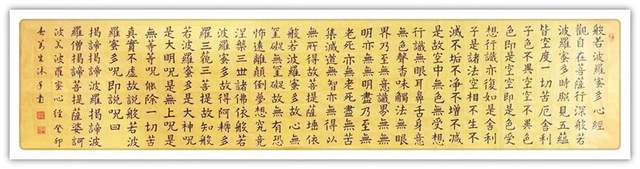 般若波羅蜜多心經
觀自在菩薩行深般若
波羅蜜多時照見五蘊
皆空度一切苦厄舍利
子色不異空空不異色
色即是空空即是色受
想行識亦復如是舍利
子是諸法空相不生不
滅不垢不淨不增不減
是故空中無色無受想
行識無眼耳鼻舌身意
無色聲香味觸法無眼
界乃至無意識界無無
明亦無無明盡乃至無
老死亦無老死盡無苦
集滅道無智亦無得以
無所得故菩提薩埵依
般若波羅蜜多故心無
罣礙無罣礙故無有恐
怖遠離顛倒夢想究竟
涅槃三世諸佛依般若
波羅蜜多故得阿耨多
羅三藐三菩提故知般
若波羅蜜多是大神呪
是大明呪是無上呪是
無等等呪能除一切苦
真實不虛故說般若波
羅蜜多呪即說呪曰
揭諦揭諦波羅揭諦波
羅僧揭諦菩提薩婆訶
波若波羅蜜心經癸卯
生沐手書